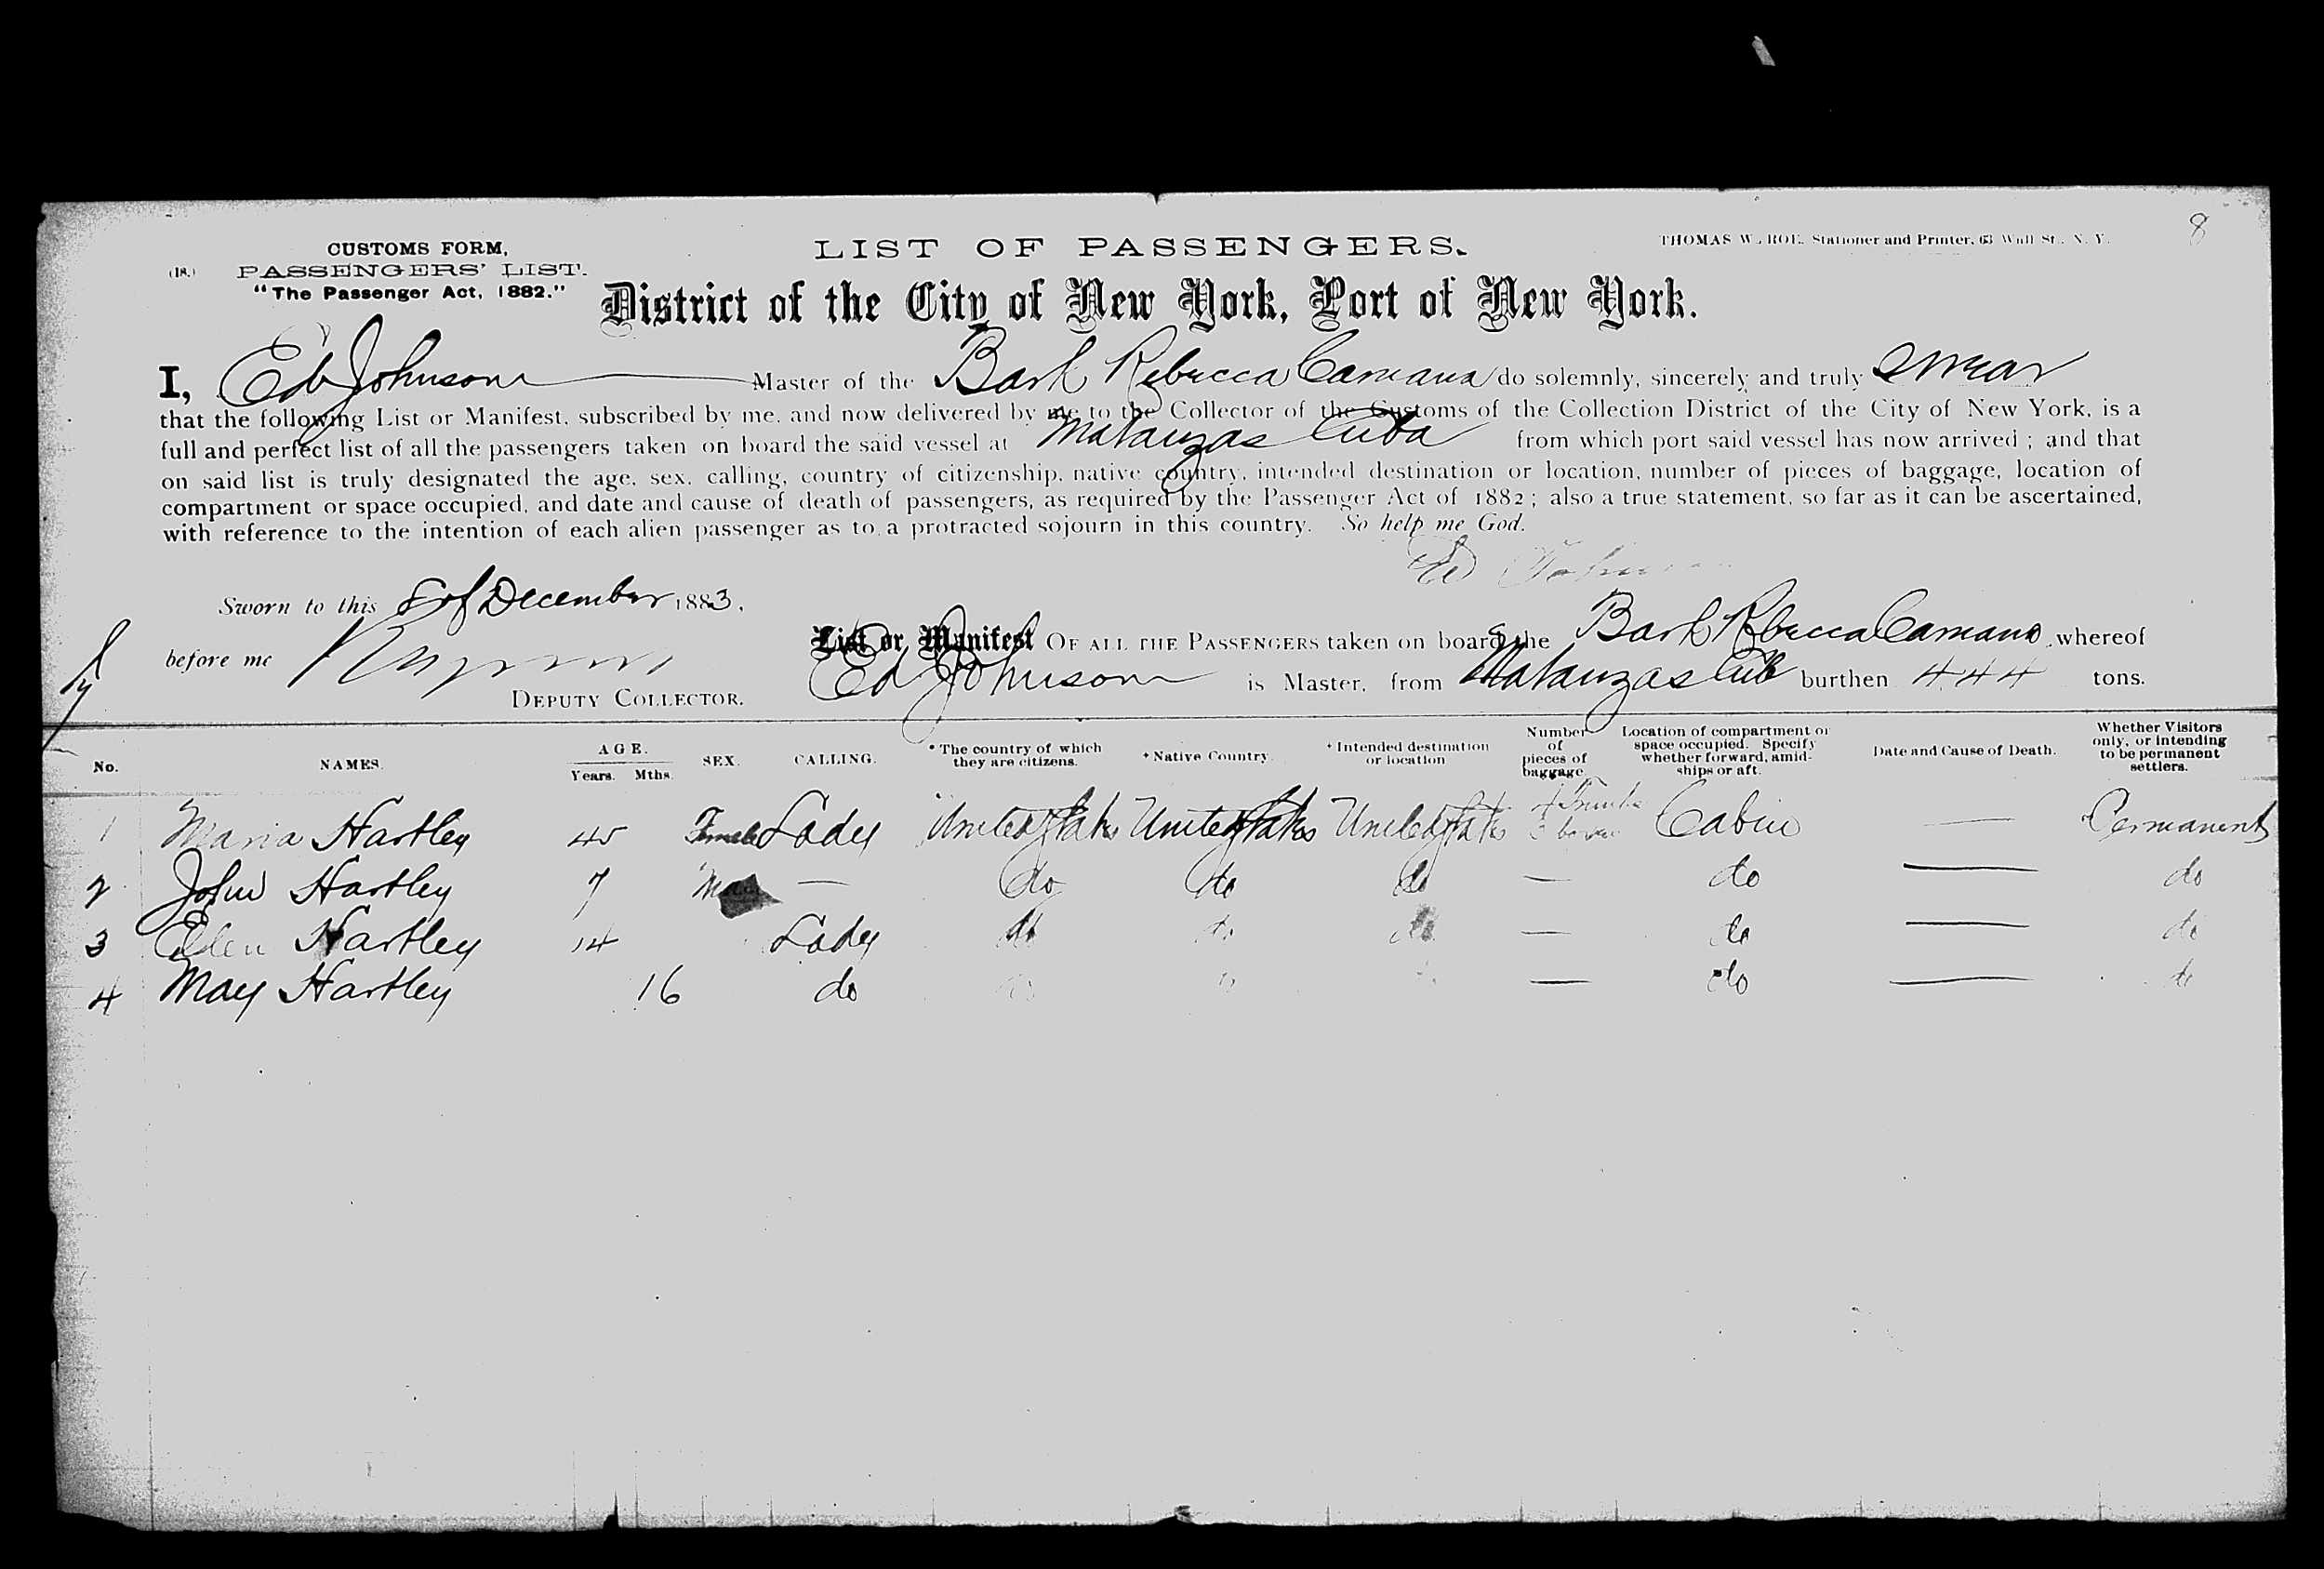 8
CUSTOMS FORM,
(18.) PASSENGERS' LIST.
"The Passenger Act, 1882."
LIST OF PASSENGERS.
THOMAS W. ROE, Stationer and Printer, 63 Wall St., N. Y.
District of the City of New York, Port of New York.
I, Ed Johnson Master of the Bark Rebecca Camana do solemnly, sincerely and truly swear
that the following List or Manifest, subscribed by me, and now delivered by me to the Collector of the Customs of the Collection District of the City of New York, is a
full and perfect list of all the passengers taken on board the said vessel at Matanzas Cuba from which port said vessel has now arrived ; and that
on said list is truly designated the age, sex, calling, country of citizenship, native country, intended destination or location, number of pieces of baggage, location of
compartment or space occupied, and date and cause of death of passengers, as required by the Passenger Act of 1882 ; also a true statement, so far as it can be ascertained,
with reference to the intention of each alien passenger as to a protracted sojourn in this country. So help me God.
Ed Johnson
Sworn to this 8 of December 1883,
before me
DEPUTY COLLECTOR.
List or Manifest OF ALL THE PASSENGERS taken on board the Bark Rebecca Camana whereof
Ed Johnson is Master, from Matanzas Cub burthen 444 tons.
No. NAMES. AGE. Years. Mths. SEX. CALLING. * The country of which they are citizens. * Native Country. * Intended destination or location Number of pieces of baggage Location of compartment or space occupied. Specify whether forward, amid-ships or aft. Date and Cause of Death. Whether Visitors only, or intending to be permanent settlers.
1 Maria Hartley 45 Female Lady United States United States United States 4 Trunks Cabin — Permanent
2 John Hartley 7 Male — do do do — do — do
3 Ellen Hartley 14 Lady do do do — do — do
4 May Hartley 16 do do do — do — do